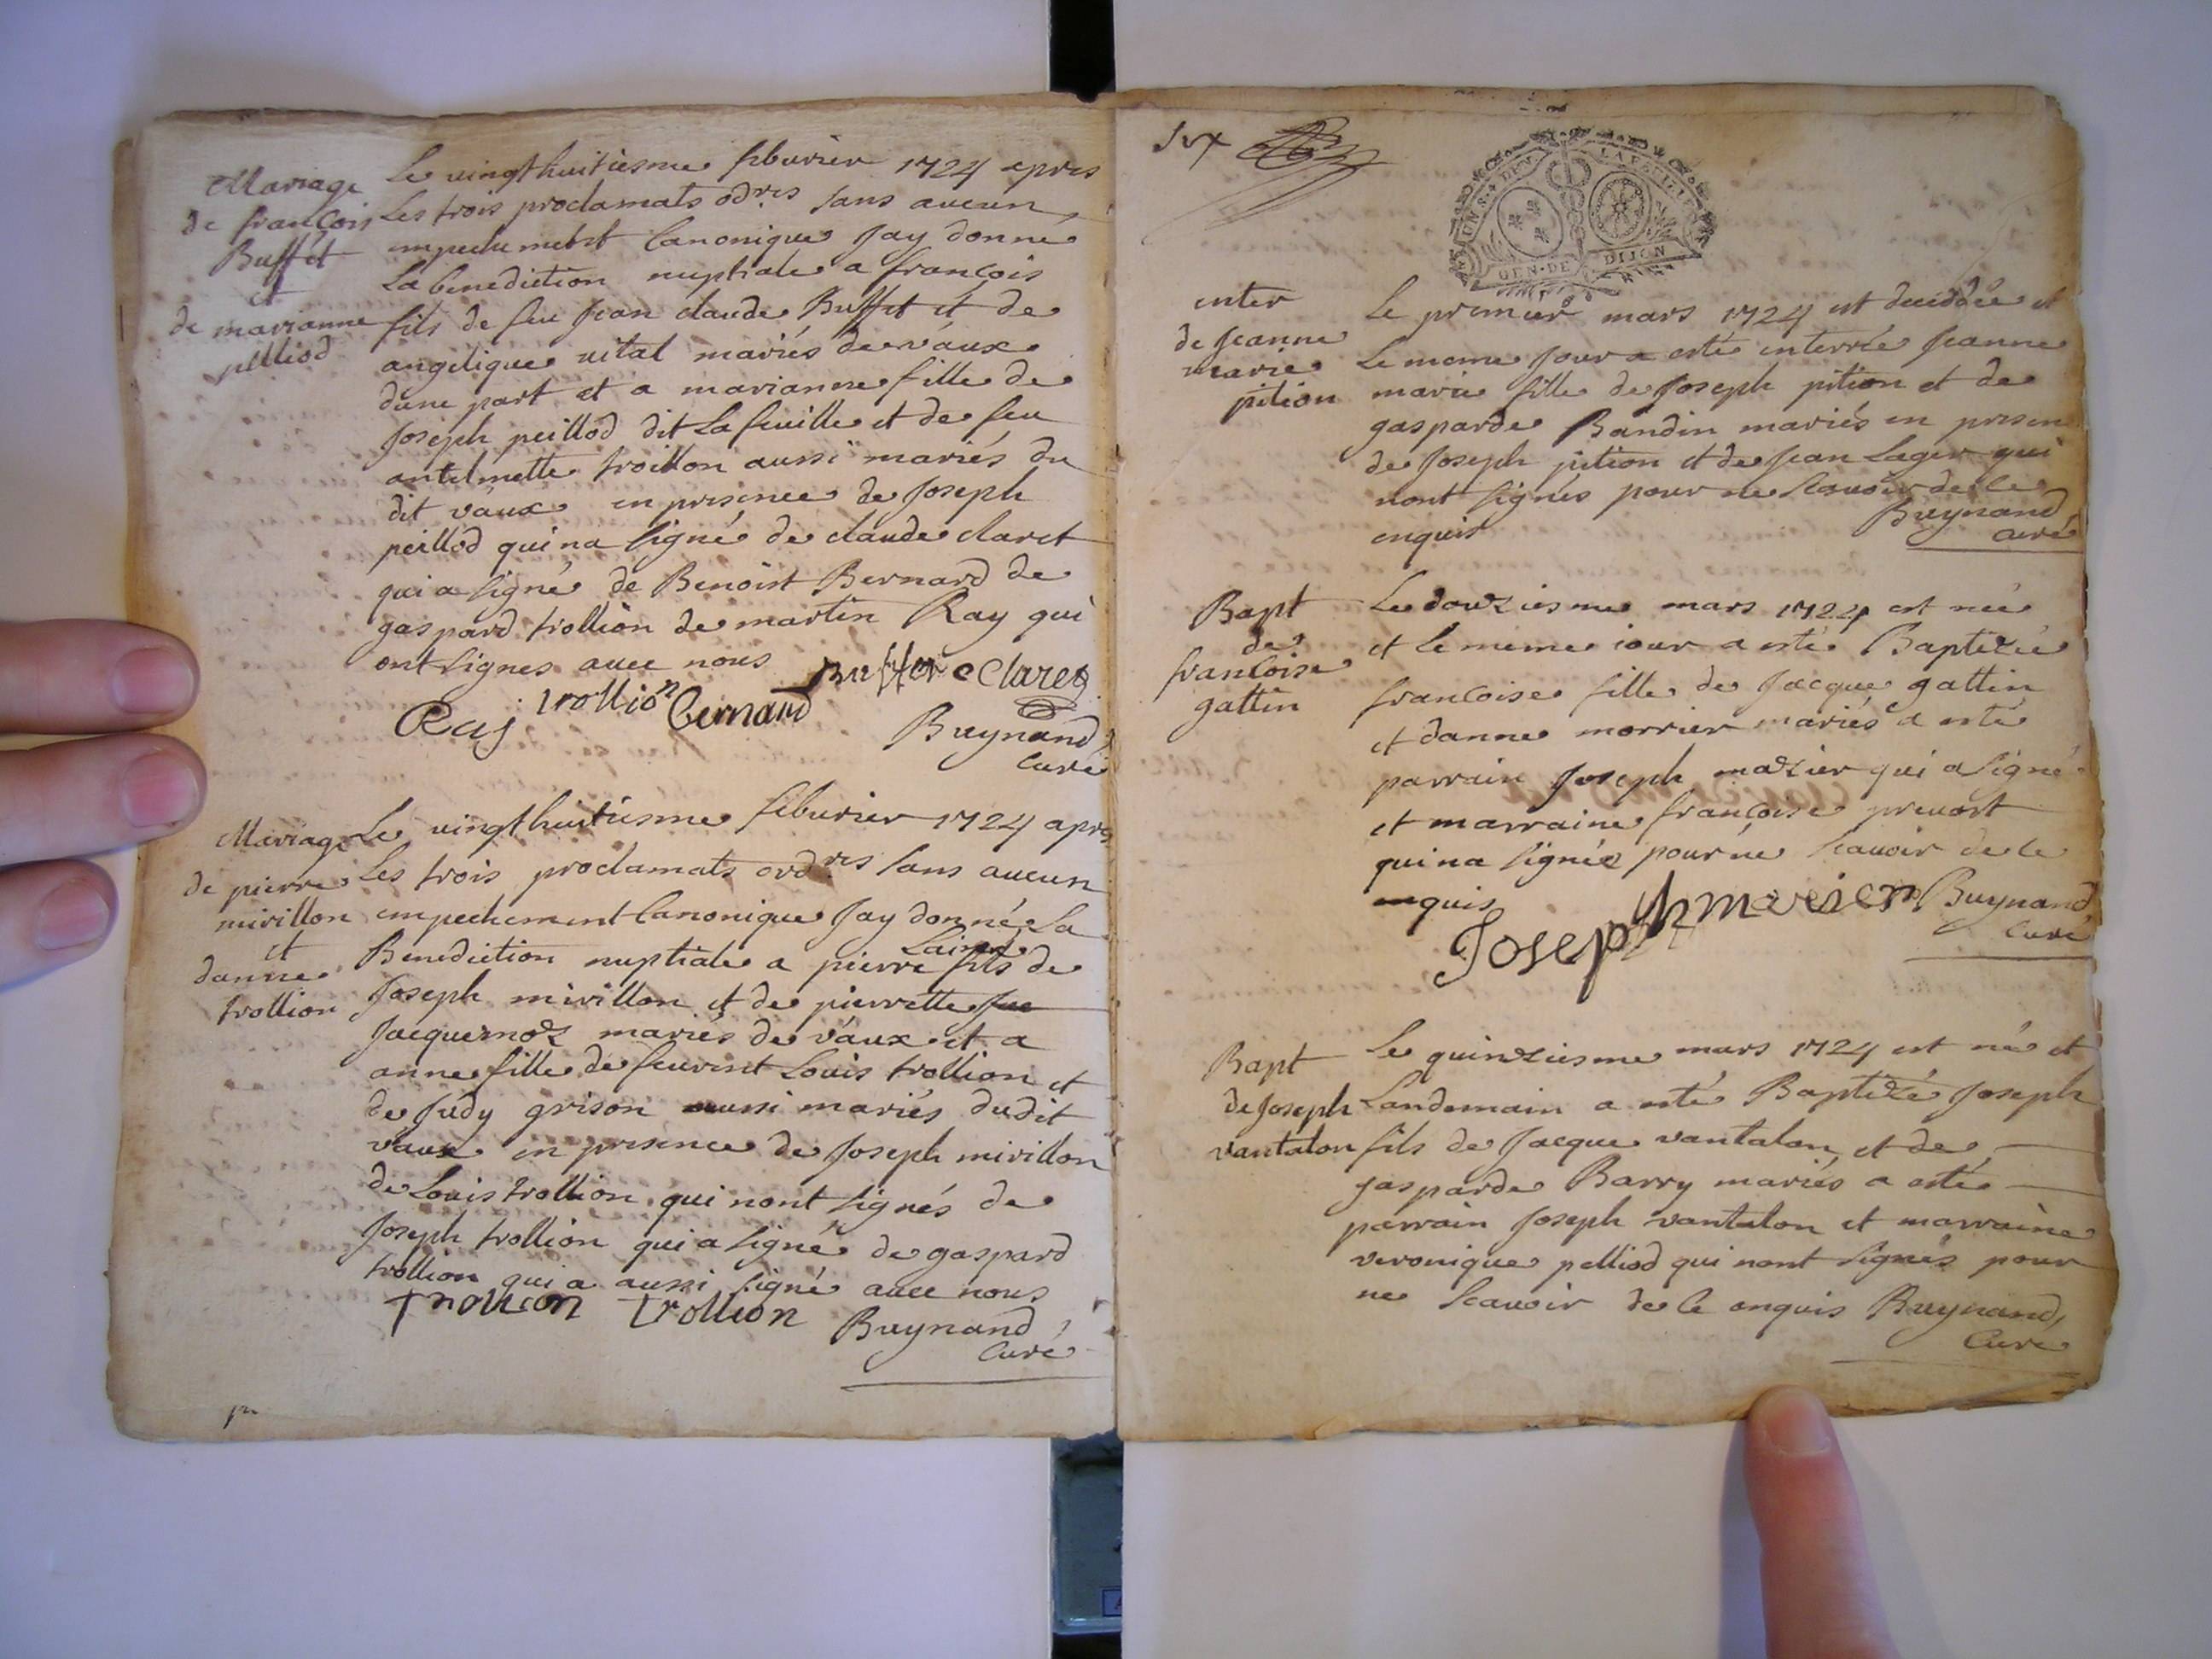 Mariage
de françois
Buffet
et
de marianne
pelliod
Le vingthuitiesme febvrier 1724 apres
Les trois proclamats ord.res sans aucun
empechement Canonique Jay donné
La benediction nuptiale a françois
fils de feu Jean claude Buffet et de
angelique vital mariés de vaux
dune part et a marianne fille de
Joseph peillod dit La feuille et de feu
antelmette troillon aussi mariés du
dit vaux en presence de Joseph
peillod qui na signé de claude claret
qui a signé de Benoist Bernard de
gaspard trollion de martin Ray qui
ont signes avec nous
Buffet Claret
Ray trollion Bernard
Buynand
Curé
Mariage
de pierre
mirillon
et
danne
trollion
Le vingthuitiesme febvrier 1724 apres
Les trois proclamats ord.res sans aucun
empechement Canonique Jay donné La
Benediction nuptiale a pierre Lainé fils de
Joseph mirillon et de pierrette Jac
Jacquemoz mariés de vaux et a
anne fille de Louis trollion et
de Judy grison aussi mariés dudit
vaux en presence de Joseph mirillon
de Louis trollion qui nont signés de
Joseph trollion qui a signé de gaspard
trollion qui a aussi signé avec nous
trollion trollion Buynand
Curé
six
GEN·DE DIJON
enter
de Jeanne
marie
pition
Le premier mars 1724 est decedée et
Le meme Jour a esté enterrée Jeanne
marie fille de Joseph pition et de
gasparde Bandin mariés en presen
de Joseph pition et de Jean Lager qui
nont signés pour ne scavoir de ce
enquis
Buynand
curé
Bapt
de
francoise
gattin
Le douziesme mars 1724 est née
et le meme iour a esté Baptizée
francoise fille de Jacque gattin
et danne morrier mariés a esté
parrain Joseph mazier qui a signé
et marraine francoise prevost
qui na signée pour ne scavoir de ce
enquis
Joseph mazier Buynand
Curé
Bapt
de Joseph
vantalon
Le quinziesme mars 1724 est né et
Landemain a esté Baptizé Joseph
fils de Jacque vantalon et de
gasparde Barry mariés a esté
parrain Joseph vantalon et marraine
veronique pelliod qui nont signés pour
ne scavoir de ce enquis Buynand
Curé